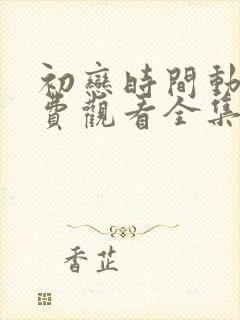 初戀時間動
費觀看全集
香芷